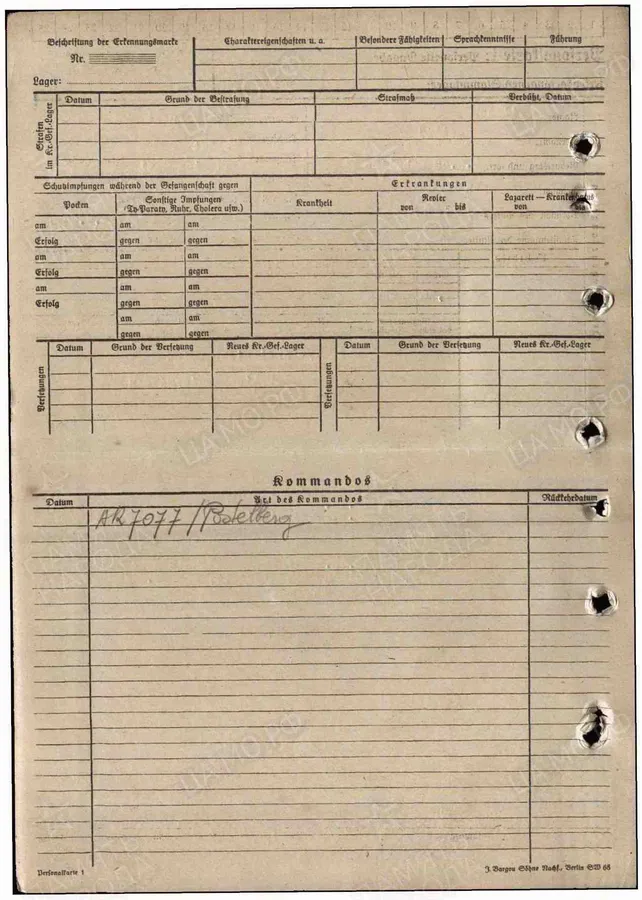 Beschriftung der Erkennungsmarke
Nr.
Lager:
Charaktereigenschaften u. a.
Besondere Fähigkeiten
Sprachkenntnisse
Führung
Strafen im Kr.-Gef.-Lager
Datum
Grund der Bestrafung
Strafmaß
Verbüßt, Datum
Schutzimpfungen während der Gefangenschaft gegen
Erkrankungen
Pocken
Sonstige Impfungen
(Ty-Paraty, Ruhr, Cholera usw.)
Krankheit
Revier
von bis
Lazarett — Krankenhaus
von bis
am am am
Erfolg gegen gegen
am am am
Erfolg gegen gegen
am am am
Erfolg gegen gegen
am am
gegen gegen
Versetzungen
Datum
Grund der Versetzung
Neues Kr.-Gef.-Lager
Versetzungen
Datum
Grund der Versetzung
Neues Kr.-Gef.-Lager
Kommandos
Datum
Art des Kommandos
Rückkehrdatum
AR 7077 / Postelberg
Personalkarte 1
J. Bargou Söhne Nachf., Berlin SW 68
ЦАМО РФ